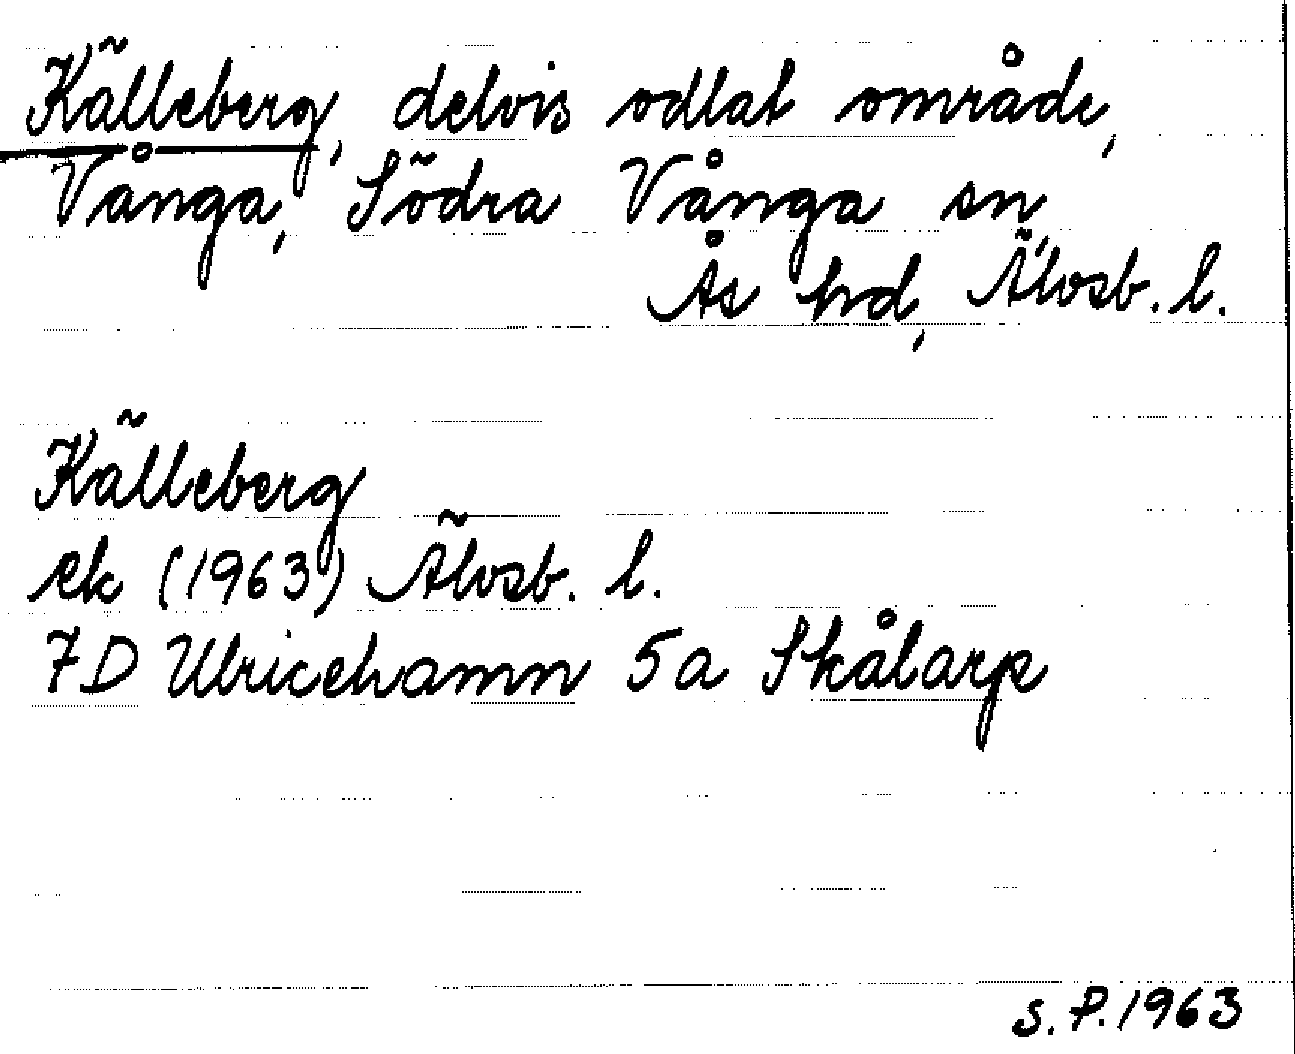 Källeberg, delvis odlat område,
Vånga, Södra Vånga sn,
Ås hd, Älvsb. l.
Källeberg
ek (1963) Älvsb. l.
7D Ulricehamn 5a Skålarp
S.P. 1963